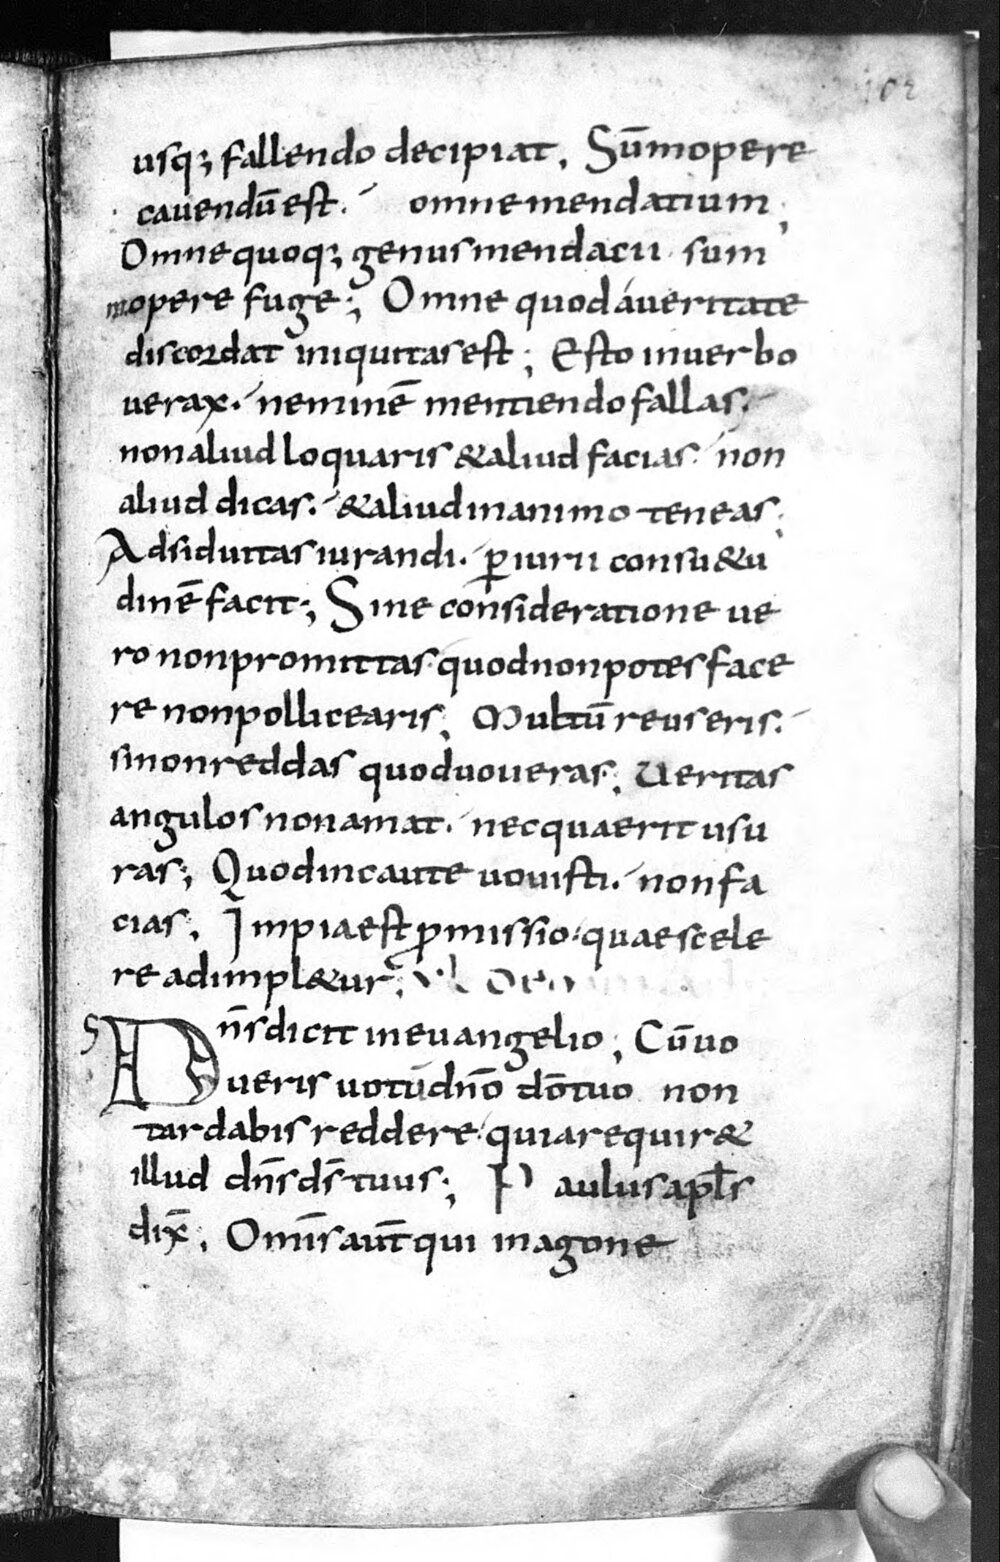 102
usq; fallendo decipiat. Sūmopere
cauendū est. omne mendatium;
Omne quoq; genus mendacii sum
mopere fuge; Omne quod á ueritate
discordat iniquitas est; Esto in uerbo
uerax. neminē mentiendo fallas.
non aliud loquaris & aliud facias. non
aliud dicas. & aliud in animo teneas;
Adsiduitas iurandi. ꝑiurii consu&u
dinē facit; Sine consideratione ue
ro non promittas. quod non potes face
re non pollicearis; Multū reus eris.
si non reddas quod uoueras; Ueritas
angulos non amat. nec quaerit usu
ras; Quod incaute uouisti. non fa
cias; Impia est ꝓmissio. quae scele
re adimpl&ur;
Dn̄s dicit in euangelio; Cū uo
ueris uotū dn̄o dō tuo non
tardabis reddere. quia requir&
illud dn̄s ds̄ tuus; Paulus apl̄s
dix̄; Om̄is aut̄ qui in agone